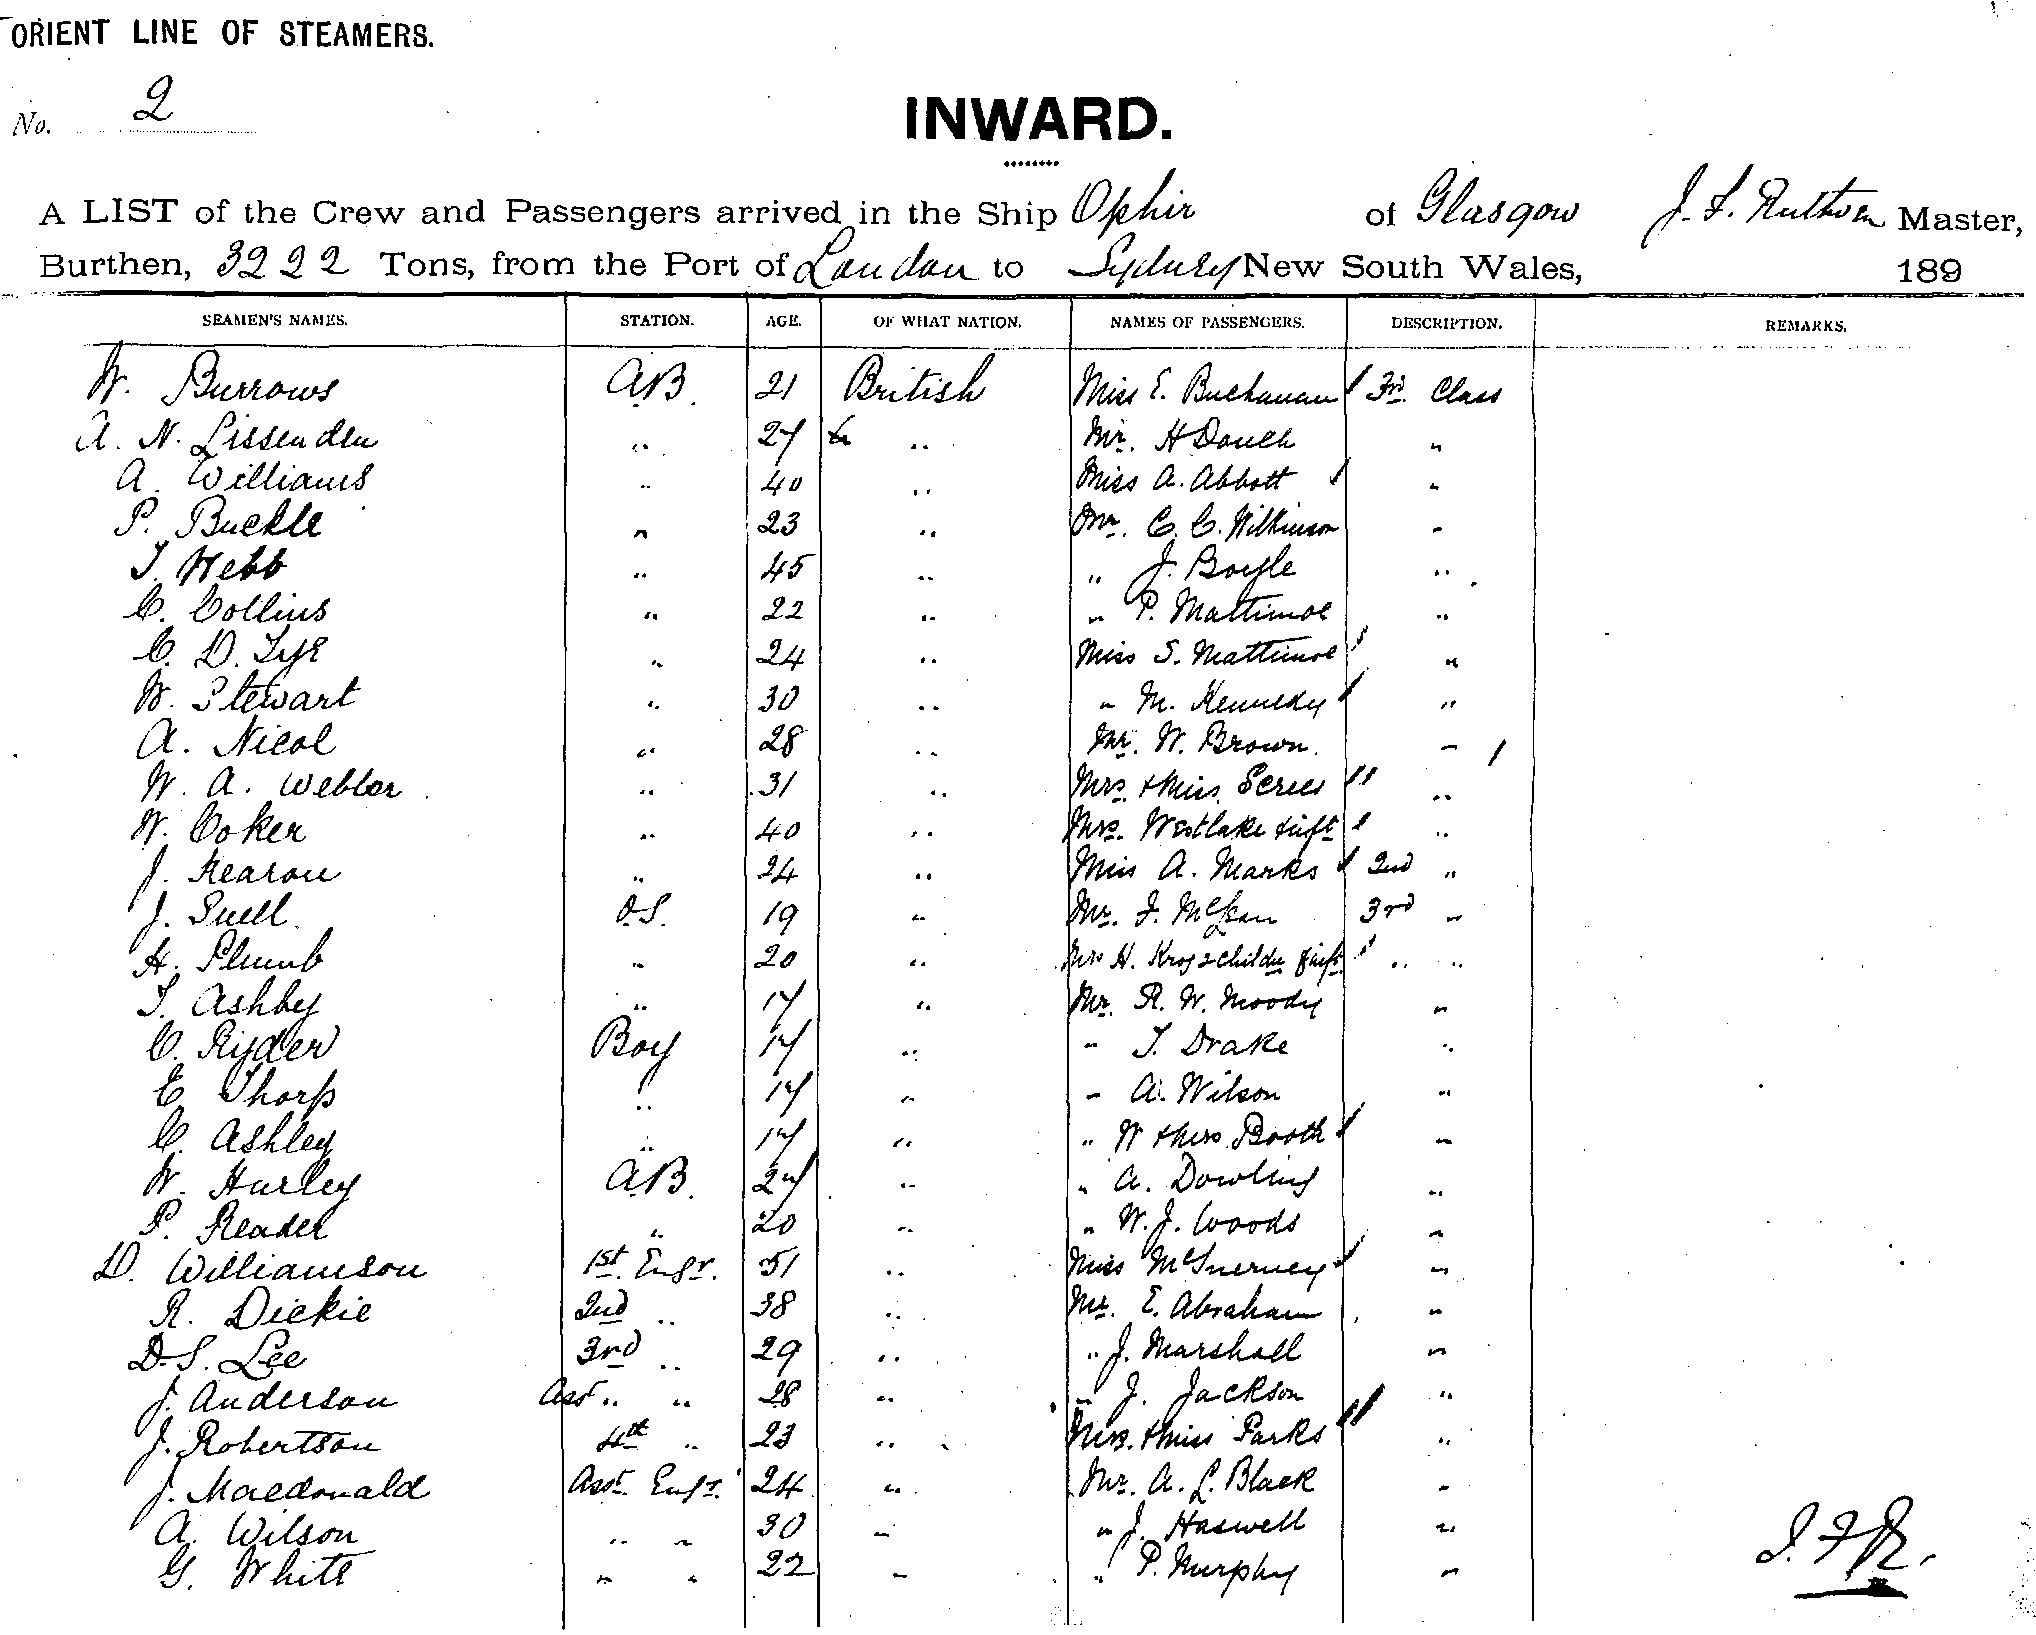 ORIENT LINE OF STEAMERS.
No. 2
INWARD.
A LIST of the Crew and Passengers arrived in the Ship Ophir of Glasgow J. F. Ruthven Master,
Burthen, 3222 Tons, from the Port of London to Sydney New South Wales, 189
SEAMEN'S NAMES. STATION. AGE. OF WHAT NATION. NAMES OF PASSENGERS. DESCRIPTION. REMARKS.
W. Burrows A.B. 21 British Miss E. Buchanan 3rd Class
A. N. Lissenden " 27 " Mr. H Douch "
A. Williams " 40 " Miss A. Abbott "
P. Buckle " 23 " Mr. C. C. Wilkinson "
T. Webb " 45 " " J. Boyle "
C. Collins " 22 " " P. Mattimoe "
C. D. Tye " 24 " Miss S. Mattimoe "
W. Stewart " 30 " " M. Kennedy "
A. Nicol " 28 " Mr. W. Brown "
W. A. Webber " 31 " Mrs. & Miss "
W. Coker " 40 " Mrs. Westlake & inft "
J. Kearon " 24 " Miss A. Marks 2nd "
J. Snell O.S. 19 " Mr. J. McLean 3rd "
H. Plumb " 20 " Mrs H. Krog 2 childn & inft " "
T. Ashby " 17 " Mr. R. W. Moody "
C. Ryder Boy 17 " " T. Drake "
E Thorp " 17 " " A. Wilson "
C. Ashley " 17 " " W & Mrs Booth "
W. Hurley A.B. 27 " " A. Dowling "
P. Reader " 20 " " W. J. Woods "
D. Williamson 1st. Engr. 51 " Miss McInerney "
R. Dickie 2nd " 38 " Mr. E. Abraham "
D. S. Lee 3rd " 29 " " J. Marshall "
J. Anderson Asst " " 28 " " J. Jackson "
J. Robertson 4th " 23 " Mrs. & Miss Parks "
J. Macdonald Asst. Engr. 24 " Mr. A. L. Black "
A. Wilson " " 30 " " J. Haswell "
G. White " " 22 " " P. Murphy "
J. F R.